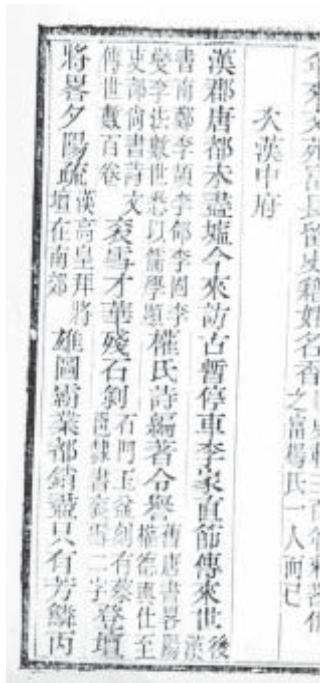 之富楊氏一人而已
次漢中府
漢郡唐都未盡墟今來訪古暫停車李家直節傳來世後漢
書南鄭李頡李郃李固李燮李法數世悉以儒學顯權氏詩編著令譽舊唐書畧陽權德輿仕至
吏部尚書詩文傳世數百卷袞雪才華殘石刻石門玉盆刻有蔡邕隸書袞雪二字登壇
將畧夕陽疏漢高皇拜將壇在南郊雄圖霸業都銷盡只有芳鱗丙